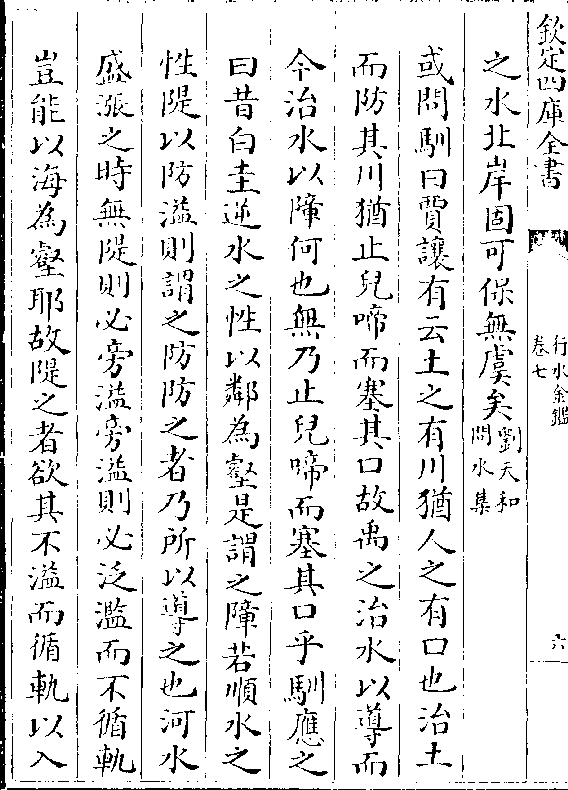 欽定四庫全書
行水金鑑
卷七
六
之水北岸固可保無虞矣劉天和
問水集
或問馴曰賈讓有云土之有川猶人之有口也治土
而防其川猶止兒啼而塞其口故禹之治水以導而
今治水以障何也無乃止兒啼而塞其口乎馴應之
曰昔白圭逆水之性以鄰為壑是謂之障若順水之
性隄以防溢則謂之防防之者乃所以導之也河水
盛漲之時無隄則必旁溢旁溢則必泛濫而不循軌
豈能以海為壑耶故隄之者欲其不溢而循軌以入